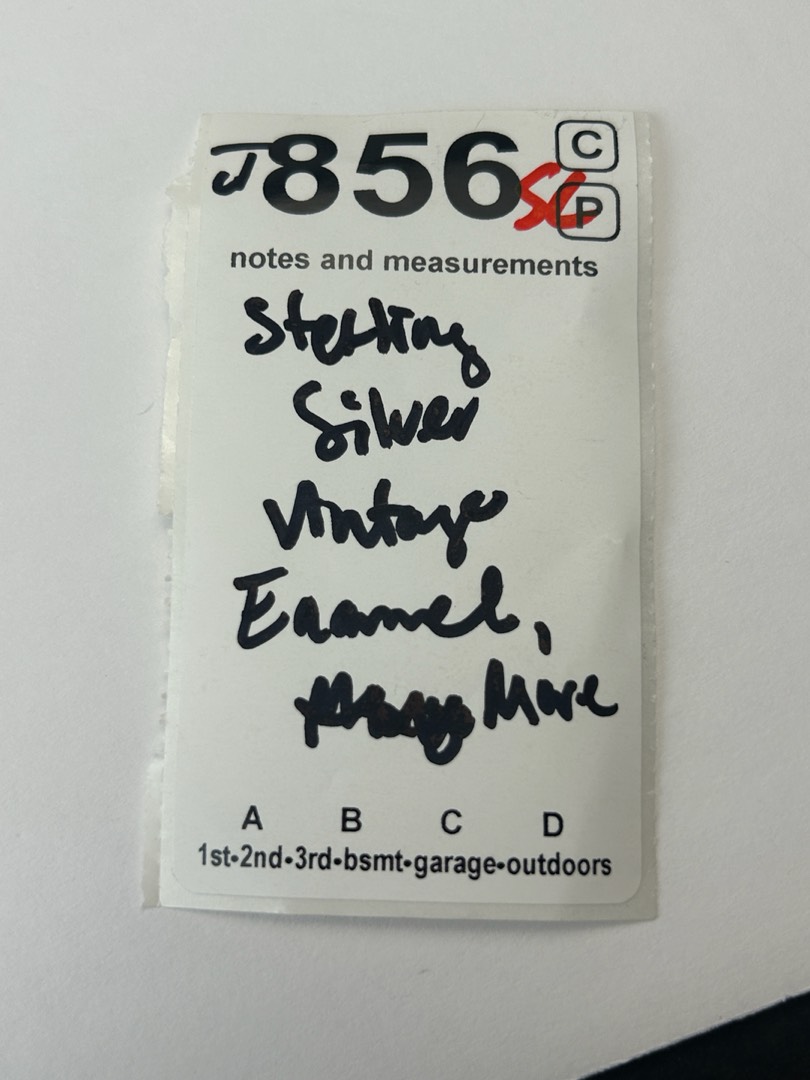 J856 SL C
P
notes and measurements
Sterling
Silver
Vintage
Enamel,
More
A B C D
1st•2nd•3rd•bsmt•garage•outdoors